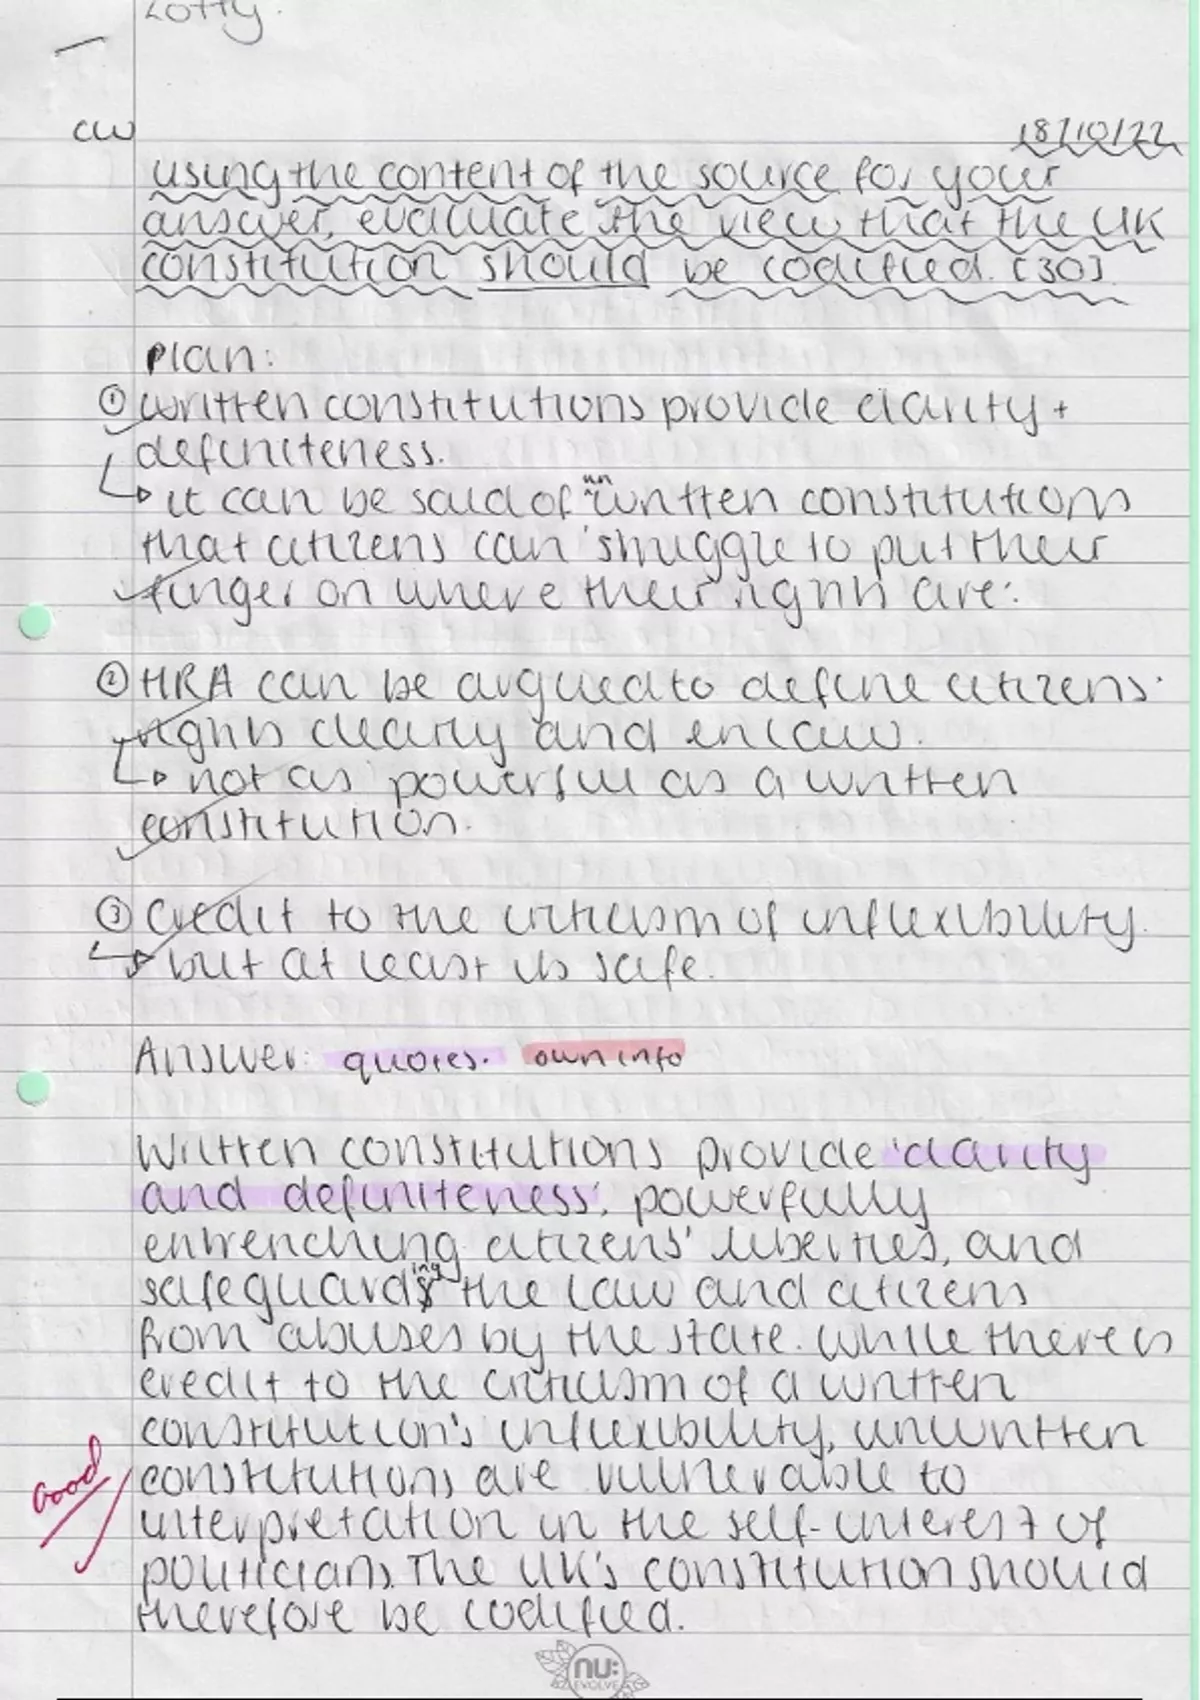 Lotty.
CW
18/10/22
using the content of the source for your
answer, evaluate the view that the UK
constitution should be codified. [30]
Plan:
① written constitutions provide clarity +
definiteness.
↳ it can be said of unwritten constitutions
that citizens can 'struggle to put their
finger on where their rights are'.
② HRA can be argued to define citizens'
rights clearly and in law.
↳ not as powerful as a written
constitution.
③ credit to the criticism of inflexibility.
↳ but at least is safe.
Answer: quotes. own info
Written constitutions provide 'clarity
and definiteness', powerfully
entrenching citizens' liberties, and
safeguarding the law and citizens
from abuses by the state. While there is
credit to the criticism of a written
constitution's inflexibility, unwritten
constitutions are vulnerable to
Good
interpretation in the self-interest of
politicians. The UK's constitution should
therefore be codified.
nu:
EVOLVE